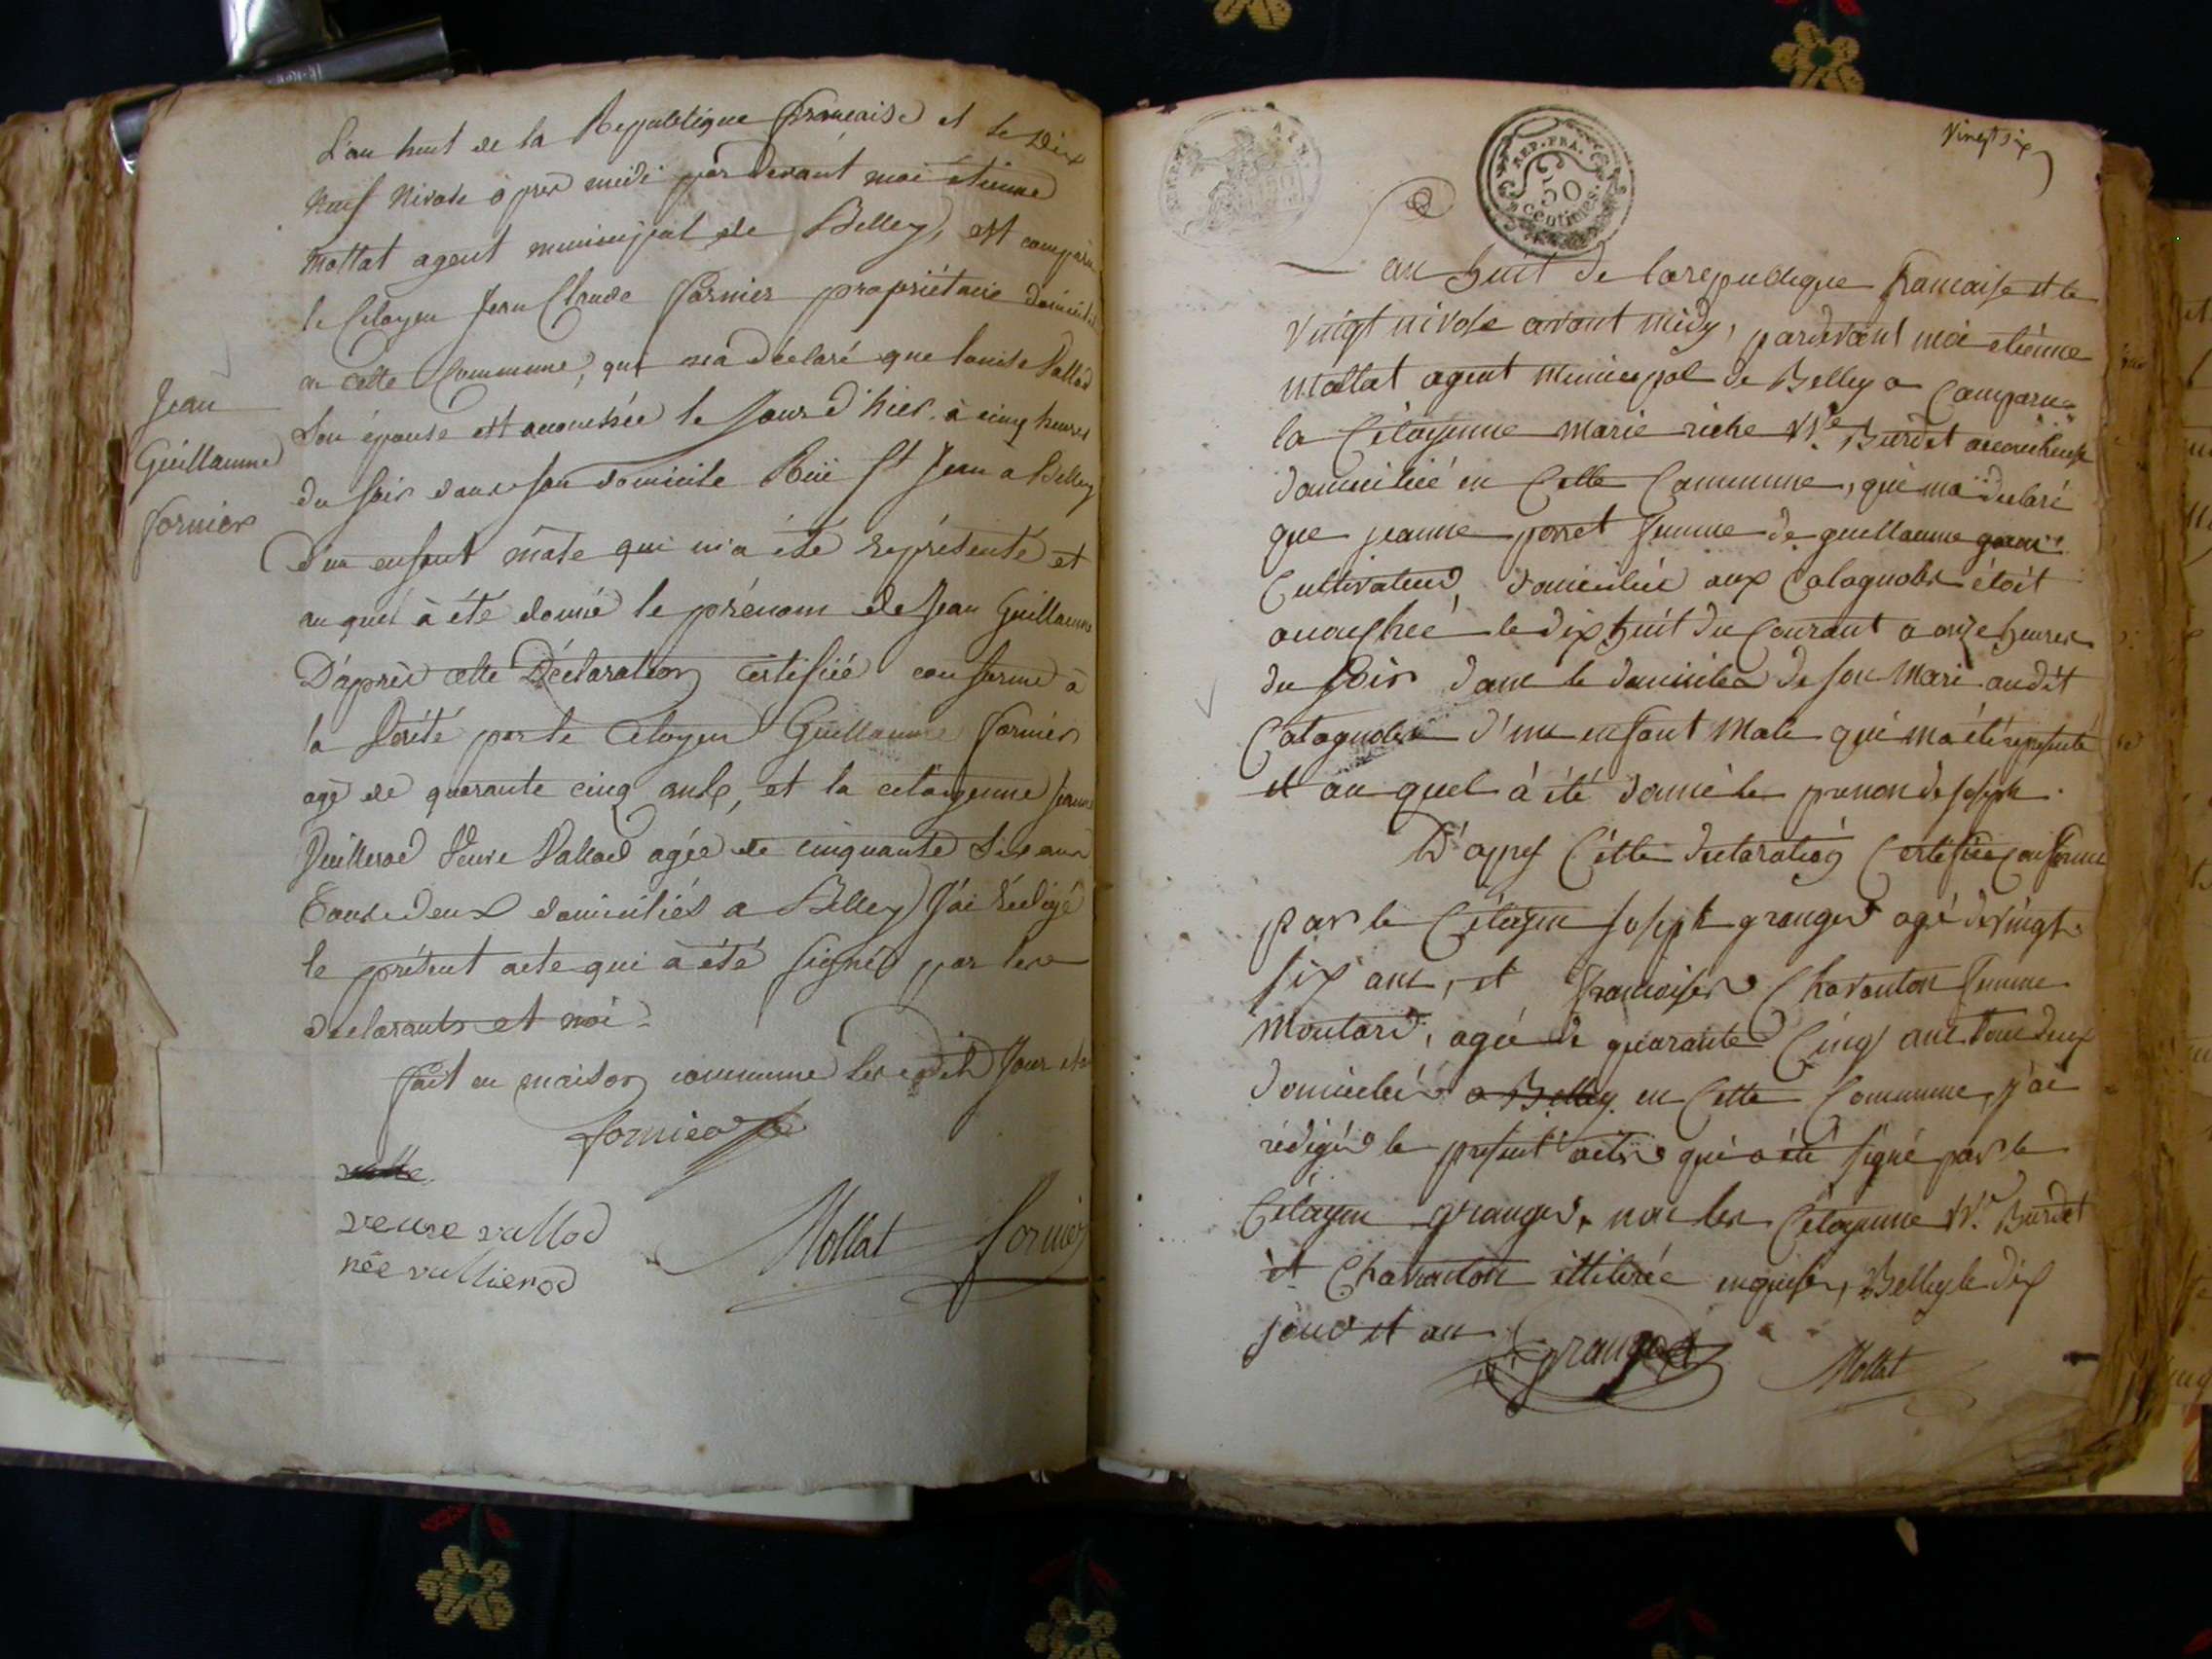 L'an huit de la Republique française et le Dix
Neuf Nivose après midi par Devant moi etienne
Mollat agent municipal de Belley, est comparu
le Citoyen Jean Claude Fornier propriétaire domicilié
en cette Commune, qui m'a déclaré que Louise Vallod
Son épouse est accouchée le Jour d'hier à cinq heures
du soir dans son domicile Rüe St Jean à Belley
D'un enfant mâle qui m'a été représenté et
au quel à été donné le prénom de Jean Guillaume
D'après cette Déclaration certifiée conforme à
la Vérité par le Citoyen Guillaume Fornier
agé de quarante cinq ans, et la citoyenne Jeanne
Veuve Vallod agée de cinquante six ans
Tous deux domiciliés a Belley J'ai Rédigé
le présent acte qui à été signé par les
déclarants et moi.
Fait en maison commune les dit Jour et an
Jean
Guillaume
Fornier
fornier
veuve vallod
née vullierod
Mollat fornier
Vingt six
REP. FRA.
50
centimes.
L'an huit de la republique francaise et le
Vingt nivose avant midy, pardevant moi etienne
Mollat agent Municipal de Belley a Comparu
la Citoyenne marie riche Ve. Burdet accoucheuse
domiciliée en Cette Commune, qui m'a declaré
que jeanne porret femme de guillaume
Cultivateur, domicilié aux Catagnoles étoit
accouchée le dix huit du Courant a onze heures
du soir dans le domicile de son Mari audit
Catagnoles d'un enfant Male qui m'a été represente
et au quel à été donné le prenom de joseph.
D'apres Cette declaration Certifiée conforme
par le Citoyen joseph granger agé de vingt
six ans, et francoise Chavanton femme
Moutard, agée de quarante Cinq ans tous deux
domiciliés a Belley en Cette Commune, j'ai
rédigé le present acte qui a été signé par le
Citoyen granger, non les Citoyenne Ve. Burdet
et Chavanton illiterée enquise, Belley le dit
jour et an
granger
Mollat